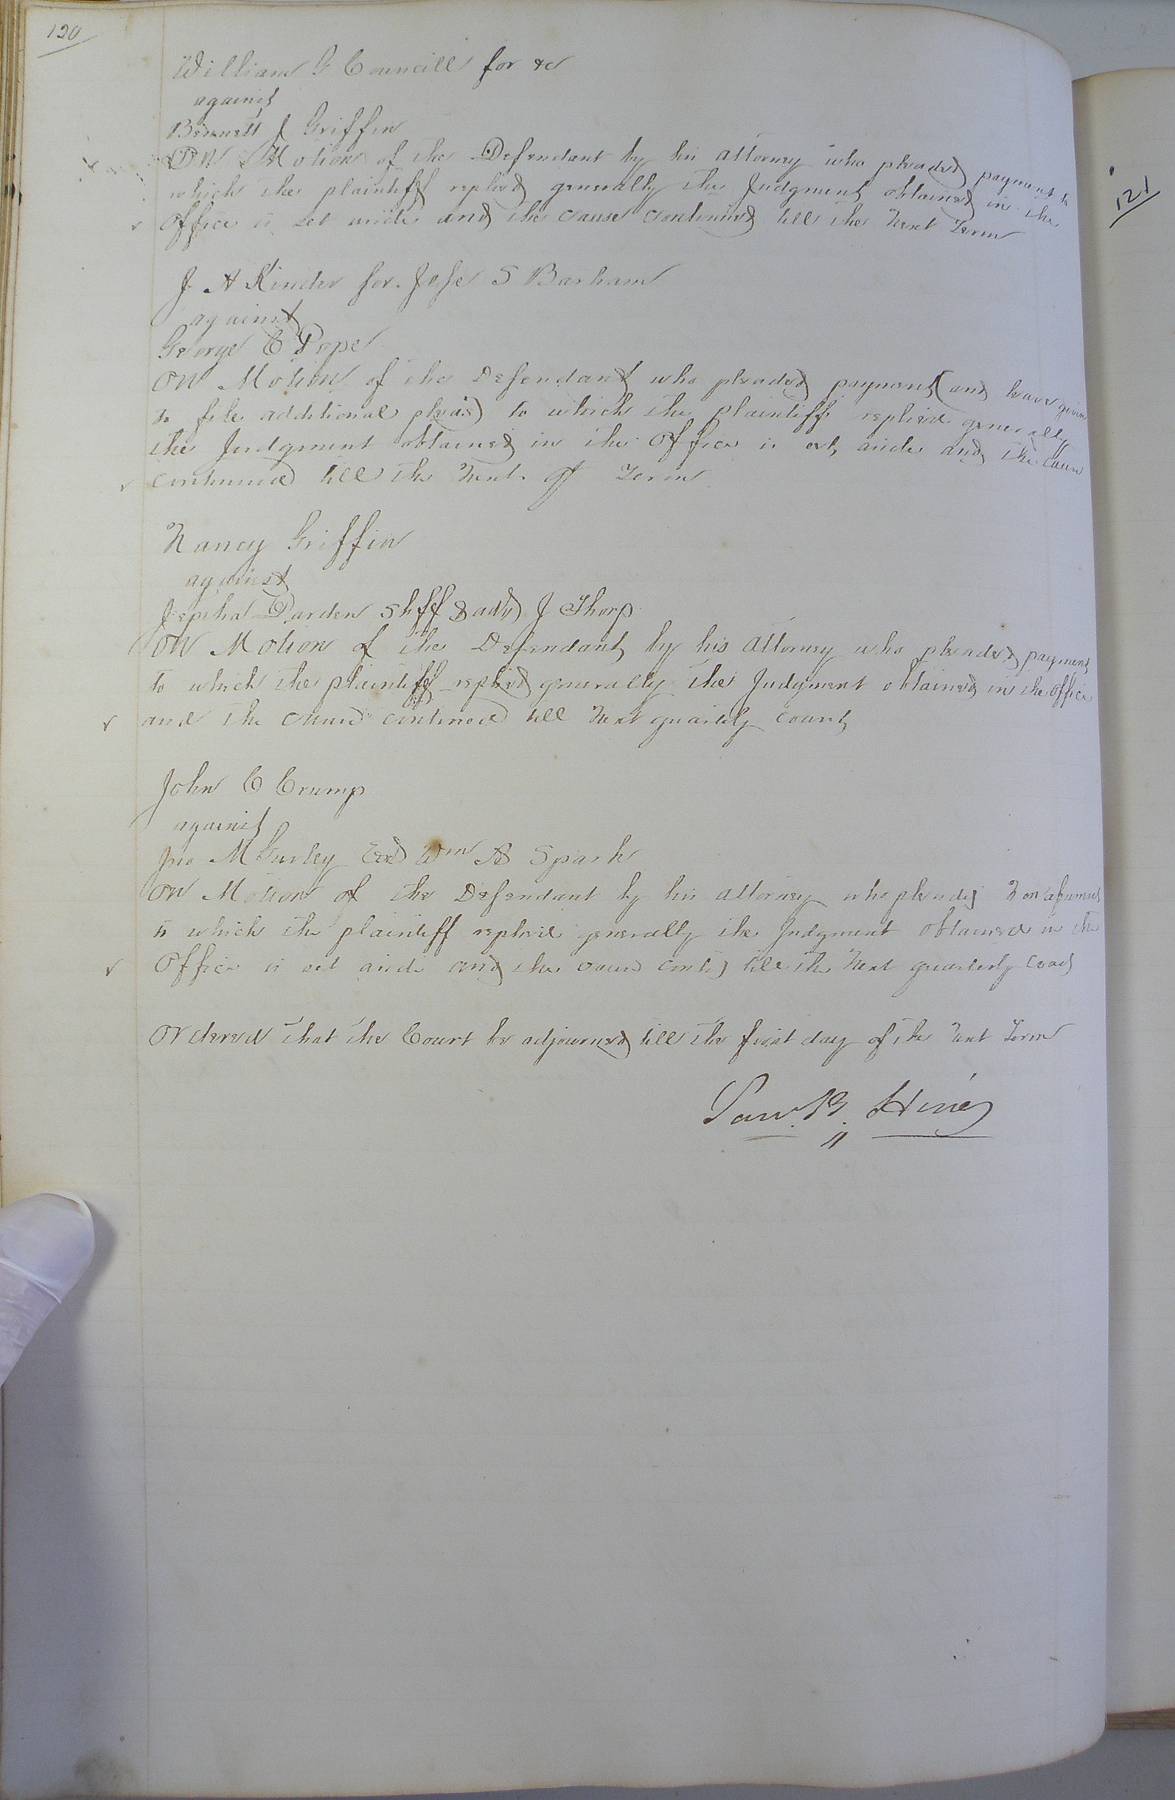 120
William G Councill for &c
against
Bennett J Griffin
On Motion of the Defendant by his attorney who pleaded payment to
which the plaintiff replied generally the Judgment obtained in the
Office is set aside and the cause continued till the Next Term
J. A Kinder for Jesse S Barham
against
George E Pope
On Motion of the Defendant who pleaded payment (and leave given
to file additional pleas) to which the plaintiff replied generally
the Judgment obtained in the Office is set aside and the cause
continued till the Next Term
Nancy Griffin
against
Jeptha Darden Shff & adr J Thorp
On Motion of the Defendant by his attorney who pleaded payment
to which the plaintiff replied generally the Judgment obtained in the office
and the cause contined till Next quartely court
John C Crump
against
Jno M Gurley Exd Wm A Spark
On Motion of the Defendant by his attorney who pleaded Non assumsit
to which the plaintiff replied generally the Judgment obtained in the
Office is set aside and the cause contd till the Next quarterly court
Ordered that the Court be adjourned till the first day of the Next Term
Saml B. Hines
121